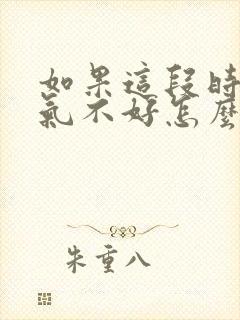 如果這段時
氣不好怎麼
朱重八